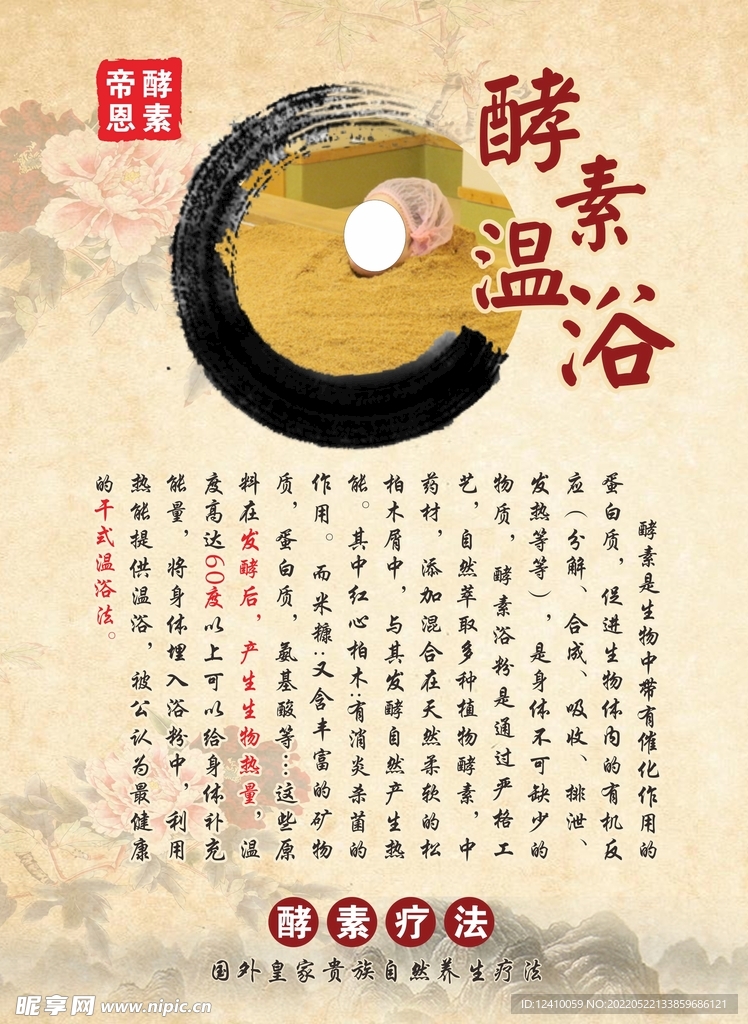 酵素
帝恩
酵素
温浴
酵素是生物中带有催化作用的
蛋白质，促进生物体内的有机反
应（分解、合成、吸收、排泄、
发热等等），是身体不可缺少的
物质，酵素浴粉是通过严格工
艺，自然萃取多种植物酵素，中
药材，添加混合在天然柔软的松
柏木屑中，与其发酵自然产生热
能。其中红心柏木:有消炎杀菌的
作用。而米糠:又含丰富的矿物
质，蛋白质，氨基酸等…这些原
料在发酵后，产生生物热量，温
度高达60度以上可以给身体补充
能量，将身体埋入浴粉中，利用
热能提供温浴，被公认为最健康
的干式温浴法。
酵素疗法
国外皇家贵族自然养生疗法
昵享网 www.nipic.cn
ID:12410059 NO:20220522133859686121